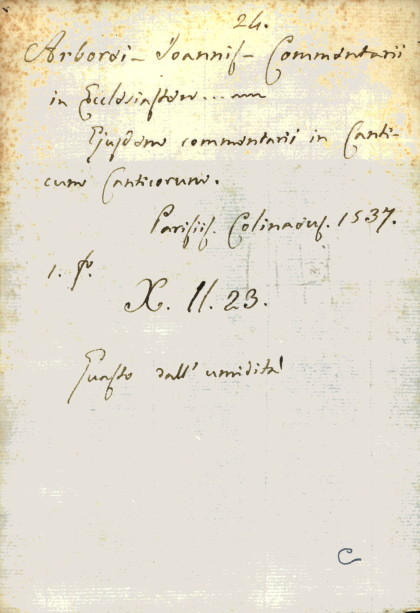 24.
Arborei- Joannis- Commentarii
in Ecclesiasten...
Ejusdem commentarii in Canti-
cum Canticorum.
Parisiis. Colinaeus. 1537.
1. fo.
X. II. 23.
Guasto dall' umidità
C